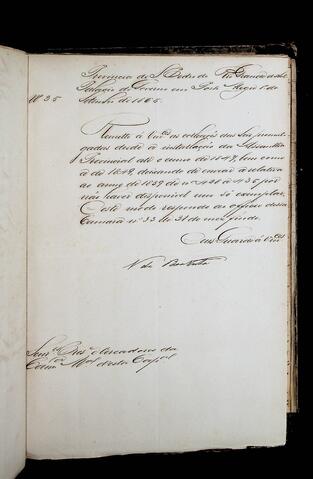 Provincia de S. Pedro do Rio Grande do Sul
Palacio do Governo em Porto Alegre 1º de
Nº 35
Setembro de 1865.
Remetto á Vmces as collecções das Leis promul-
gadas desde a installação da Assembléa
Provincial até o anno de 1847, bem como
a de 1849, deixando de enviar a relativa
ao
por
não haver disponivel um só exemplar.
Deste modo respondo ao officio dessa
Camara nº 33 de 31 de mez findo.
Deus Guarde á Vmces
Senres Prese e Vereadores da
Camra Mal desta Capal